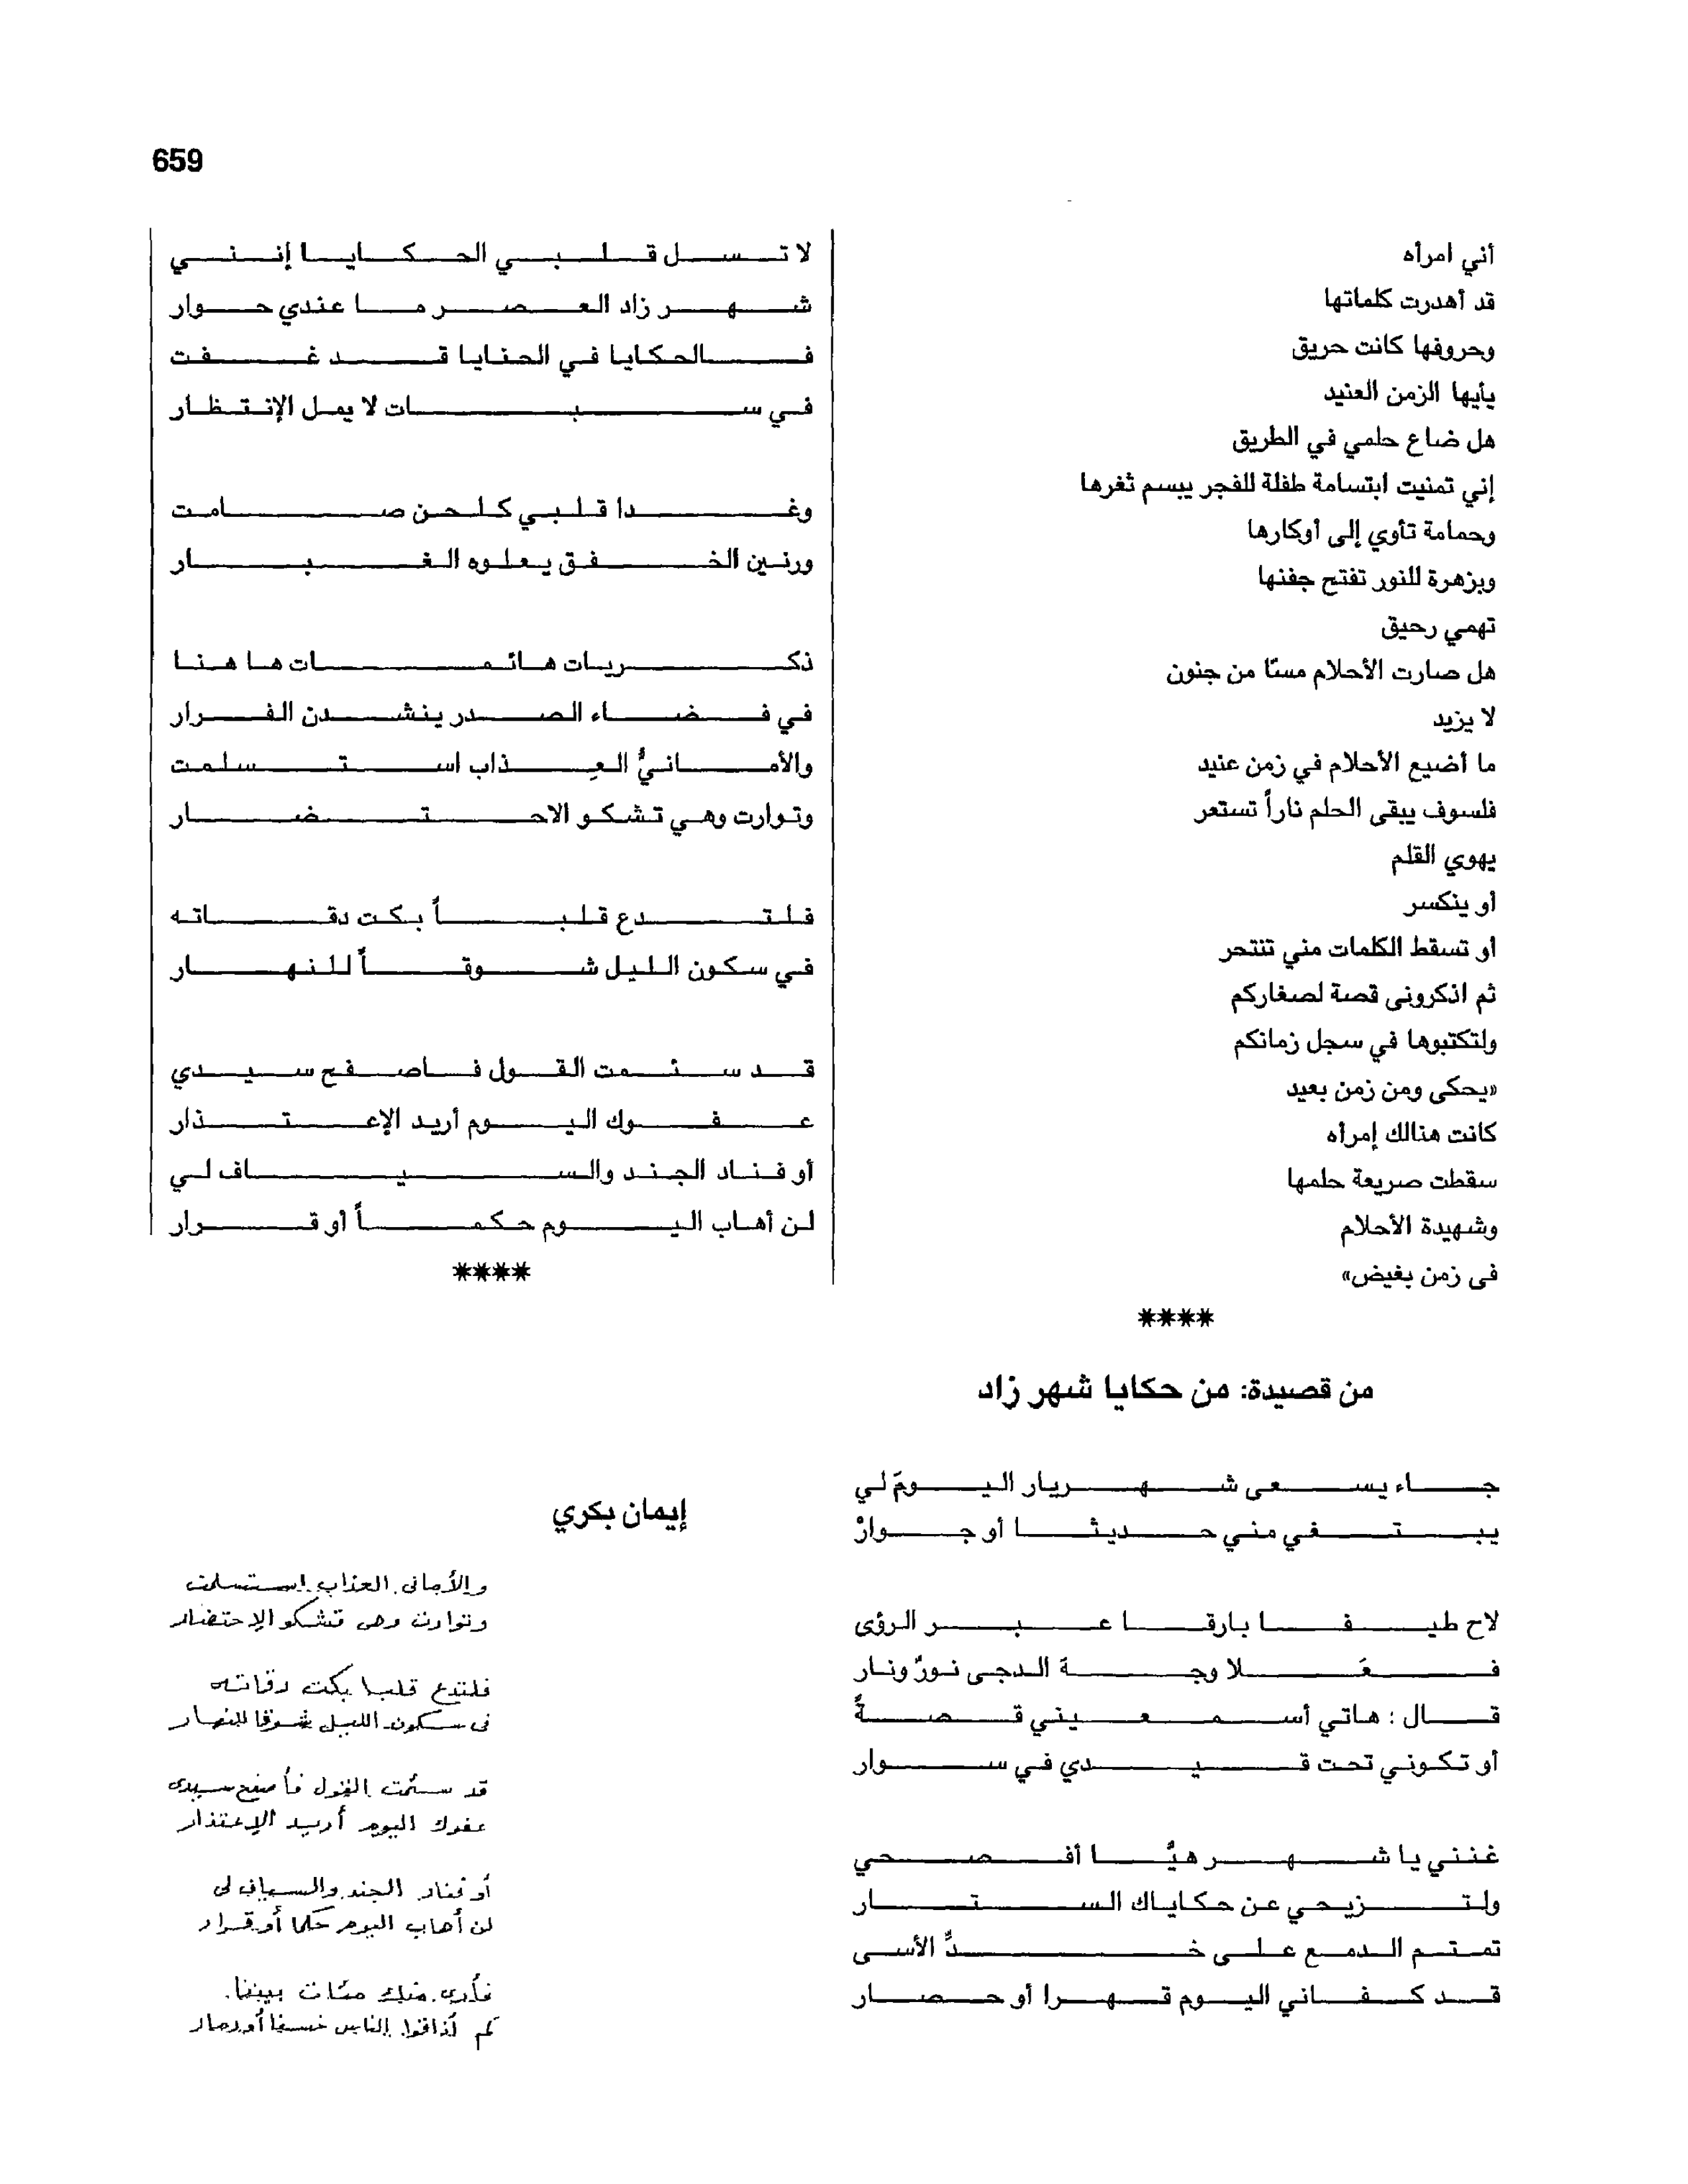 659
أني امرأه
قد أهدرت كلماتها
وحروفها كانت حريق
يأيها الزمن العنيد
هل ضاع حلمي في الطريق
إني تمنيت ابتسامة طفلة للفجر يبسم ثغرها
وحمامة تأوي إلى أوكارها
وبزهرة للنور تفتح جفنها
تهمي رحيق
هل صارت الأحلام مسًا من جنون
لا يزيد
ما أضيع الأحلام في زمن عنيد
فلسوف يبقى الحلم ناراً تستعر
يهوي القلم
أو ينكسر
أو تسقط الكلمات مني تنتحر
ثم اذكرونى قصة لصغاركم
ولتكتبوها في سجل زمانكم
«يحكى ومن زمن بعيد
كانت هنالك إمرأه
سقطت صريعة حلمها
وشهيدة الأحلام
فى زمن بغيض»
****
من قصيدة: من حكايا شهر زاد
جاء يسعى شهريار اليومَ لي
يبتغي مني حديثا أو جوارْ
لاح طيفا بارقا عبر الرؤى
فعَلا وجهَ الدجى نورٌ ونار
قال : هاتي أسمعيني قصةً
أو تكوني تحت قيدي في سوار
غنني يا شهر هيَّا أفصحي
ولتزيحي عن حكاياك الستار
تمتم الدمع على خدِّ الأسى
قد كفاني اليوم قهرا أو حصار
لا تسل قلبي الحكايا إنني
شهر زاد العصر ما عندي حوار
فالحكايا في الحنايا قد غفت
في سبات لا يمل الإنتظار
وغدا قلبي كلحن صامت
ورنين الخفق يعلوه الغبار
ذكريات هائمات ها هنا
في فضاء الصدر ينشدن الفرار
والأمانيُّ العِذاب استسلمت
وتوارت وهي تشكو الاحتضار
فلتدع قلباً بكت دقاته
في سكون الليل شوقاً للنهار
قد سئمت القول فاصفح سيدي
عفوك اليوم أريد الإعتذار
أو فناد الجند والسياف لي
لن أهاب اليوم حكماً أو قرار
****
إيمان بكري
والأمانى العذاب استسلمت
وتوارت وهى تشكو الإحتضار
فلتدع قلبا بكت دقاته
فى سكون الليل شوقا للنهار
قد سئمت القول فأصفح سيدى
عفوك اليوم أريد الإعتذار
أو فناد الجند والسياف لى
لن أهاب اليوم حكما أو قرار
فأرى منك مئات بيننا
كم أذاقوا الناس خسفا أو دمار